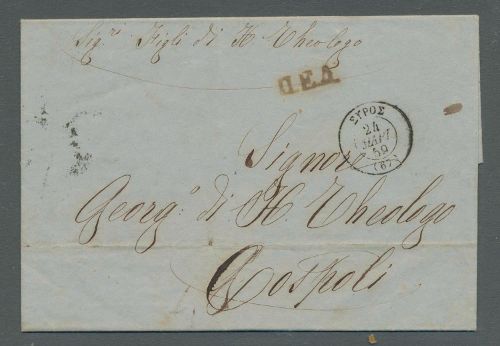 Sig.ri Figli di H Theologo
ΠΕΔ
ΣΥΡΟΣ
24
ΜΑΡΤ
59
(67)
Signore
Georg.o di H. Theologo
Cospoli